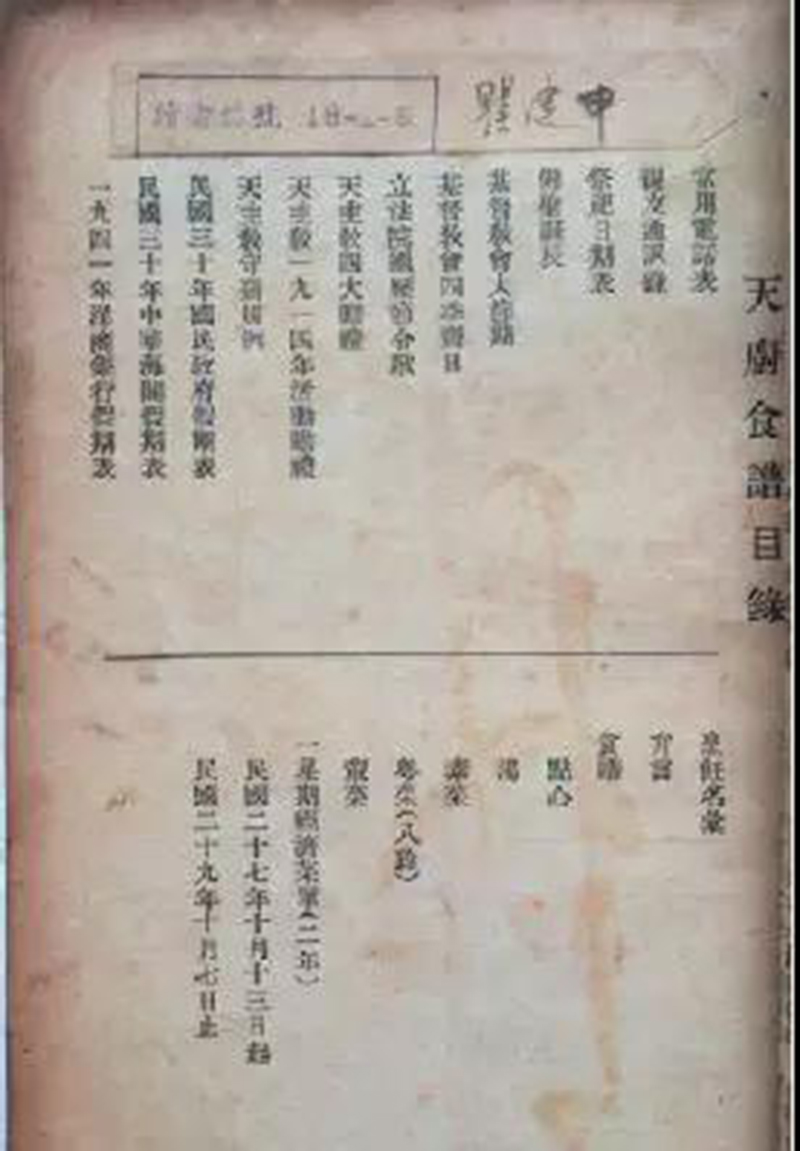 天廚食譜目錄
常用電話表
親友通訊錄
祭祀日期表
佛聖誕辰
基督教會大節期
基督教會四季齋日
立法院國曆節令歌
天主教四大瞻禮
天主教一九四一年活動瞻禮
天主教守齋規例
民國三十年國民政府假期表
民國三十年中華海關假期表
一九四一年洋商銀行假期表
烹飪名彙
弁言
食譜
點心
湯
素菜
粵菜(八雞)
葷菜
一星期經濟菜單(二年)
民國二十七年十月十三日起
民國二十九年十月七日止
18-
建申